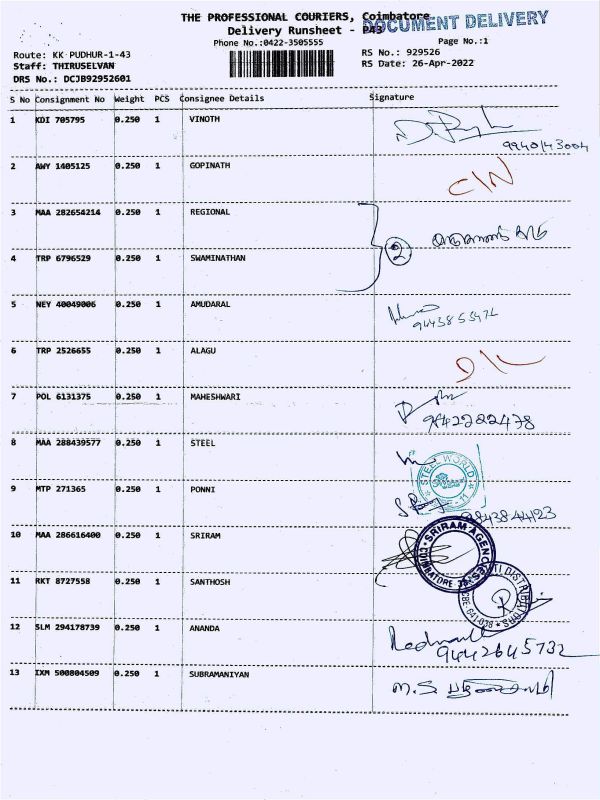 THE PROFESSIONAL COURIERS, Coimbatore
DOCUMENT DELIVERY
Delivery Runsheet - P43
Phone No.:0422-3505555
Page No.:1
Route: KK PUDHUR-1-43
RS No.: 929526
Staff: THIRUSELVAN
RS Date: 26-Apr-2022
DRS No.: DCJB92952601
S No Consignment No Weight PCS Consignee Details Signature
1 KDI 705795 0.250 1 VINOTH
9940143004
2 AWY 1405125 0.250 1 GOPINATH
C/N
3 MAA 282654214 0.250 1 REGIONAL
2
4 TRP 6796529 0.250 1 SWAMINATHAN
5 NEY 40049006 0.250 1 AMUDARAL
6 TRP 2526655 0.250 1 ALAGU
7 POL 6131375 0.250 1 MAHESHWARI
9842222478
8 MAA 288439577 0.250 1 STEEL
STEEL WORLD
9 MTP 271365 0.250 1 PONNI
10 MAA 286616400 0.250 1 SRIRAM
SRIRAM AGENCIES
COIMBATORE
11 RKT 8727558 0.250 1 SANTHOSH
DISTRIBUTORS
CBE-641 038
12 SLM 294178739 0.250 1 ANANDA
9442645732
13 IXM 500804509 0.250 1 SUBRAMANIYAN
M.S